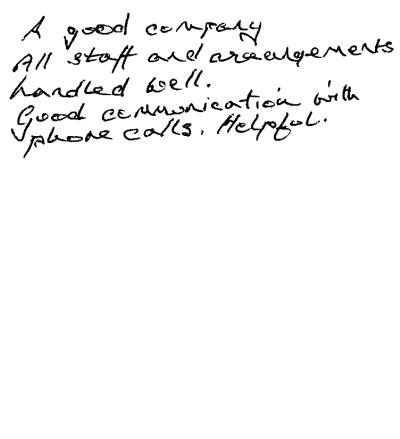 A good company
All staff and arrangements
handled well.
Good communication with
phone calls. Helpful.